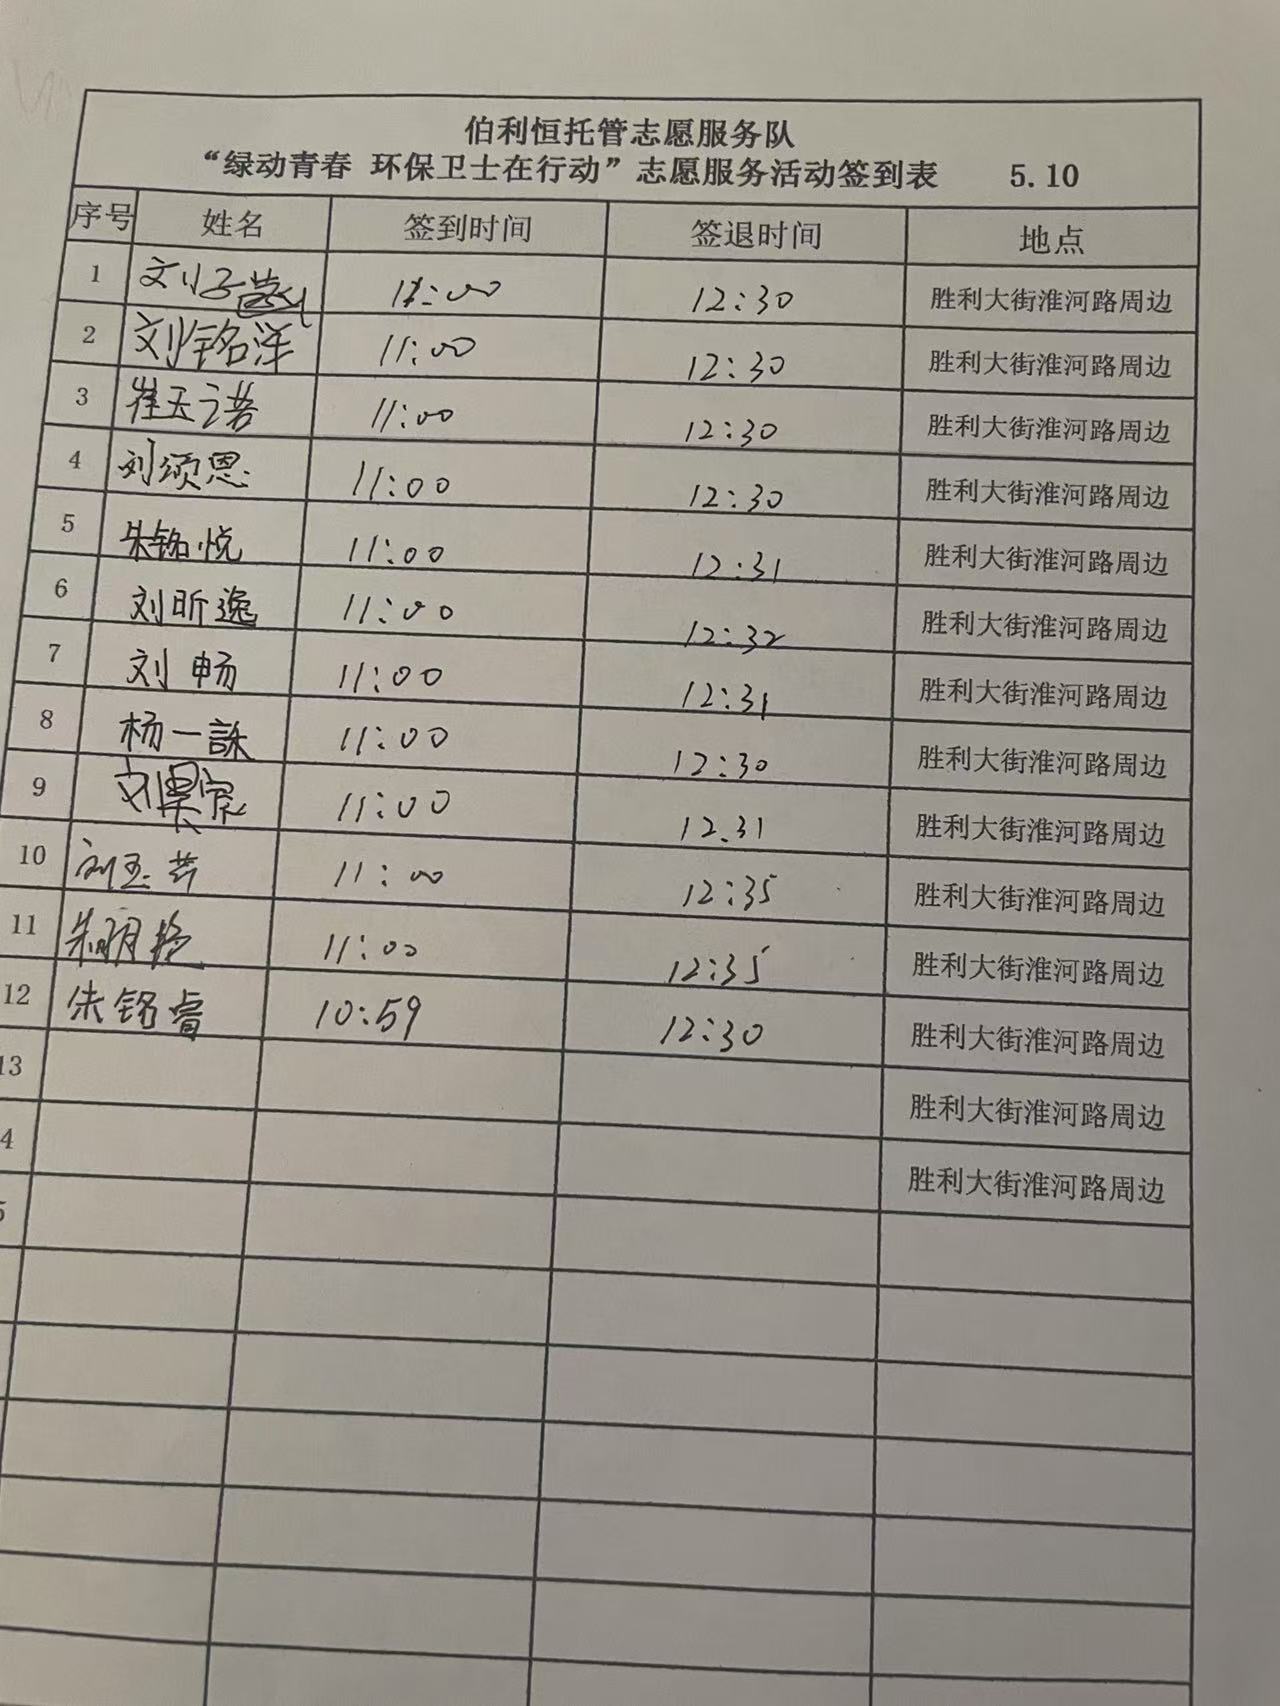 伯利恒托管志愿服务队
“绿动青春 环保卫士在行动”志愿服务活动签到表 5.10
序号 姓名 签到时间 签退时间 地点
1 刘子 11:00 12:30 胜利大街淮河路周边
2 刘铭洋 11:00 12:30 胜利大街淮河路周边
3 崔玉之诺 11:00 12:30 胜利大街淮河路周边
4 刘颂恩 11:00 12:30 胜利大街淮河路周边
5 朱铭悦 11:00 12:31 胜利大街淮河路周边
6 刘昕逸 11:00 12:32 胜利大街淮河路周边
7 刘畅 11:00 12:31 胜利大街淮河路周边
8 杨一 11:00 12:30 胜利大街淮河路周边
9 刘昊宗 11:00 12.31 胜利大街淮河路周边
10 刘玉芳 11:00 12:35 胜利大街淮河路周边
11 朱明艳 11:00 12:35 胜利大街淮河路周边
12 朱铭睿 10:59 12:30 胜利大街淮河路周边
13 胜利大街淮河路周边
4 胜利大街淮河路周边
5